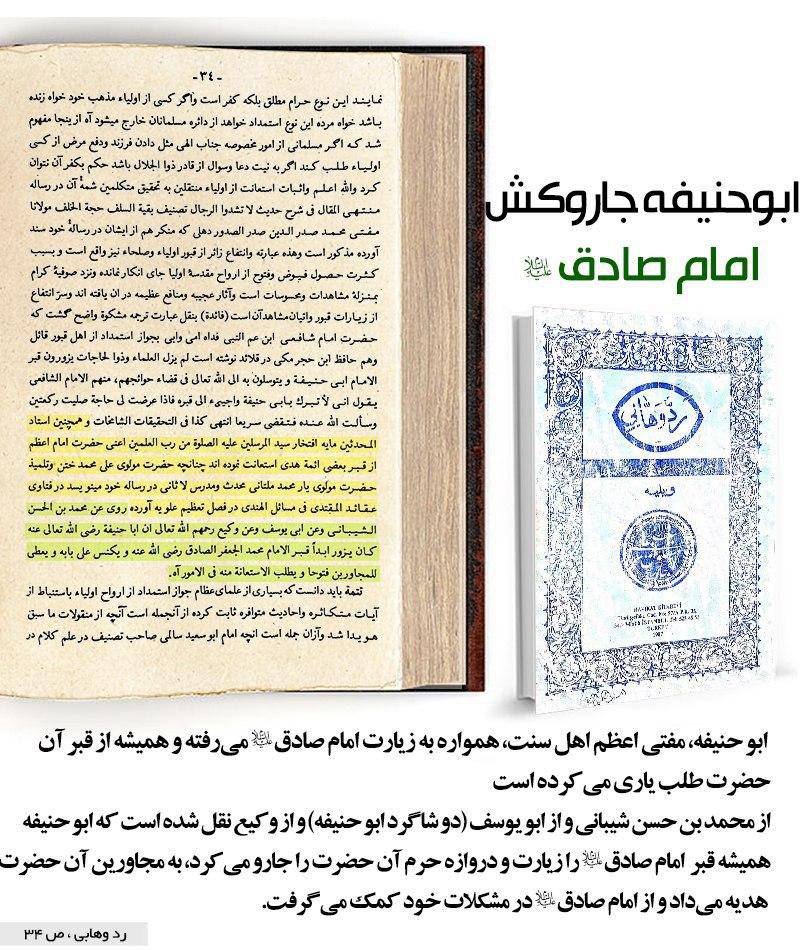 ابوحنیفه جاروکش
امام صادق علیه السلام
- ٣٤ -
نمایند این نوع حرام مطلق بلکه کفر است واگر کسی از اولیاء مذهب خود خواه زنده
باشد خواه مرده این نوع استمداد خواهد از دائره مسلمانان خارج میشود آه ازینجا مفهوم
شد که اگر مسلمانی از امور مخصوصه جناب الهی مثل دادن فرزند ودفع مرض از کسی
اولیاء طلب کند اگر به نیت دعا وسوال از قادر ذوا الجلال باشد حکم بکفر آن نتوان
کرد والله اعلم واثبات استعانت از اولیاء منتقلین به تحقیق متکلمین شمهٔ آن در رساله
منتهی المقال فی شرح حدیث لا تشدوا الرجال تصنیف بقیة السلف حجة الخلف مولانا
مفتی محمد صدر الدین صدر الصدور دهلی که منکر هم از ایشان در رسالهٔ خود سند
آورده مذکور است وهذه عبارته وانتفاع زائر از قبور اولیاء وصلحاء نیز واقع است و بسبب
کثرت حصول فیوض وفتوح از ارواح مقدسهٔ اولیا جای انکار نمانده ونزد صوفیهٔ کرام
بمنزلهٔ مشاهدات ومحسوسات است وآثار عجیبه ومنافع عظیمه در ان یافته اند وسرّ انتفاع
از زیارات قبور واتیان مشاهد آن است (فائدة) بنقل عبارت ترجمه مشکوة واضح گشت که
حضرت امام شافعی ابن عم النبی فداه امی وابی بجواز استمداد از اهل قبور قائل
وهم حافظ ابن حجر مکی در قلائد نوشته است لم یزل العلماء وذوا لحاجات یزورون قبر
الامام ابی حنیفة و یتوسلون به الی الله تعالی فی قضاء حوائجهم، منهم الامام الشافعی
یقول انی لأتبرک بابی حنیفة واجییء الی قبره فاذا عرضت لی حاجة صلیت رکعتین
وسألت الله عنده فتقضی سریعا انتهی کذا فی التحقیقات الشامخات و همچنین استاد
المحدثین مایه افتخار سید المرسلین علیه الصلوة من رب العلمین اعنی حضرت امام اعظم
از قبر بعضی ائمهٔ هدی استعانت نموده اند چنانچه حضرت مولوی علی محمد ختن وتلمیذ
حضرت مولوی یار محمد ملتانی محدث ومدرس لا ثانی در رساله خود مینو یسد در فتاوی
عقائد المقتدی فی مسائل الهندی در فصل تعظیم علو یه آورده روی عن محمد بن الحسن
الشیبانی وعن ابی یوسف وعن وکیع رحمهم الله تعالی ان ابا حنیفة رضی الله تعالی عنه
کان یزور ابدأ قبر الامام محمد الجعفر الصادق رضی الله عنه و یکنس علی بابه و یعطی
للمجاورین فتوحا و یطلب الاستعانة منه فی الامور آه.
تتمة باید دانست که بسیاری از علمای عظام جواز استمداد از ارواح اولیاء باستنباط از
آیات متکاثره واحادیث متوافره ثابت کرده از آنجمله است آنچه از منقولات ما سبق
هویدا شد وآزان جمله است انچه امام ابو سعید سالمی صاحب تصنیف در علم کلام در
ردّ وهابی
و یلیه
HAKIKAT KİTABEVİ
TURKEY
1987
ابو حنیفه، مفتی اعظم اهل سنت، همواره به زیارت امام صادق علیه السلام می‌رفته و همیشه از قبر آن
حضرت طلب یاری می کرده است
از محمد بن حسن شیبانی و از ابو یوسف (دو شاگرد ابو حنیفه) و از وکیع نقل شده است که ابو حنیفه
همیشه قبر امام صادق علیه السلام را زیارت و دروازه حرم آن حضرت را جارو می کرد، به مجاورین آن حضرت
هدیه می‌داد و از امام صادق علیه السلام در مشکلات خود کمک می گرفت.
رد وهابی ، ص ۳۴